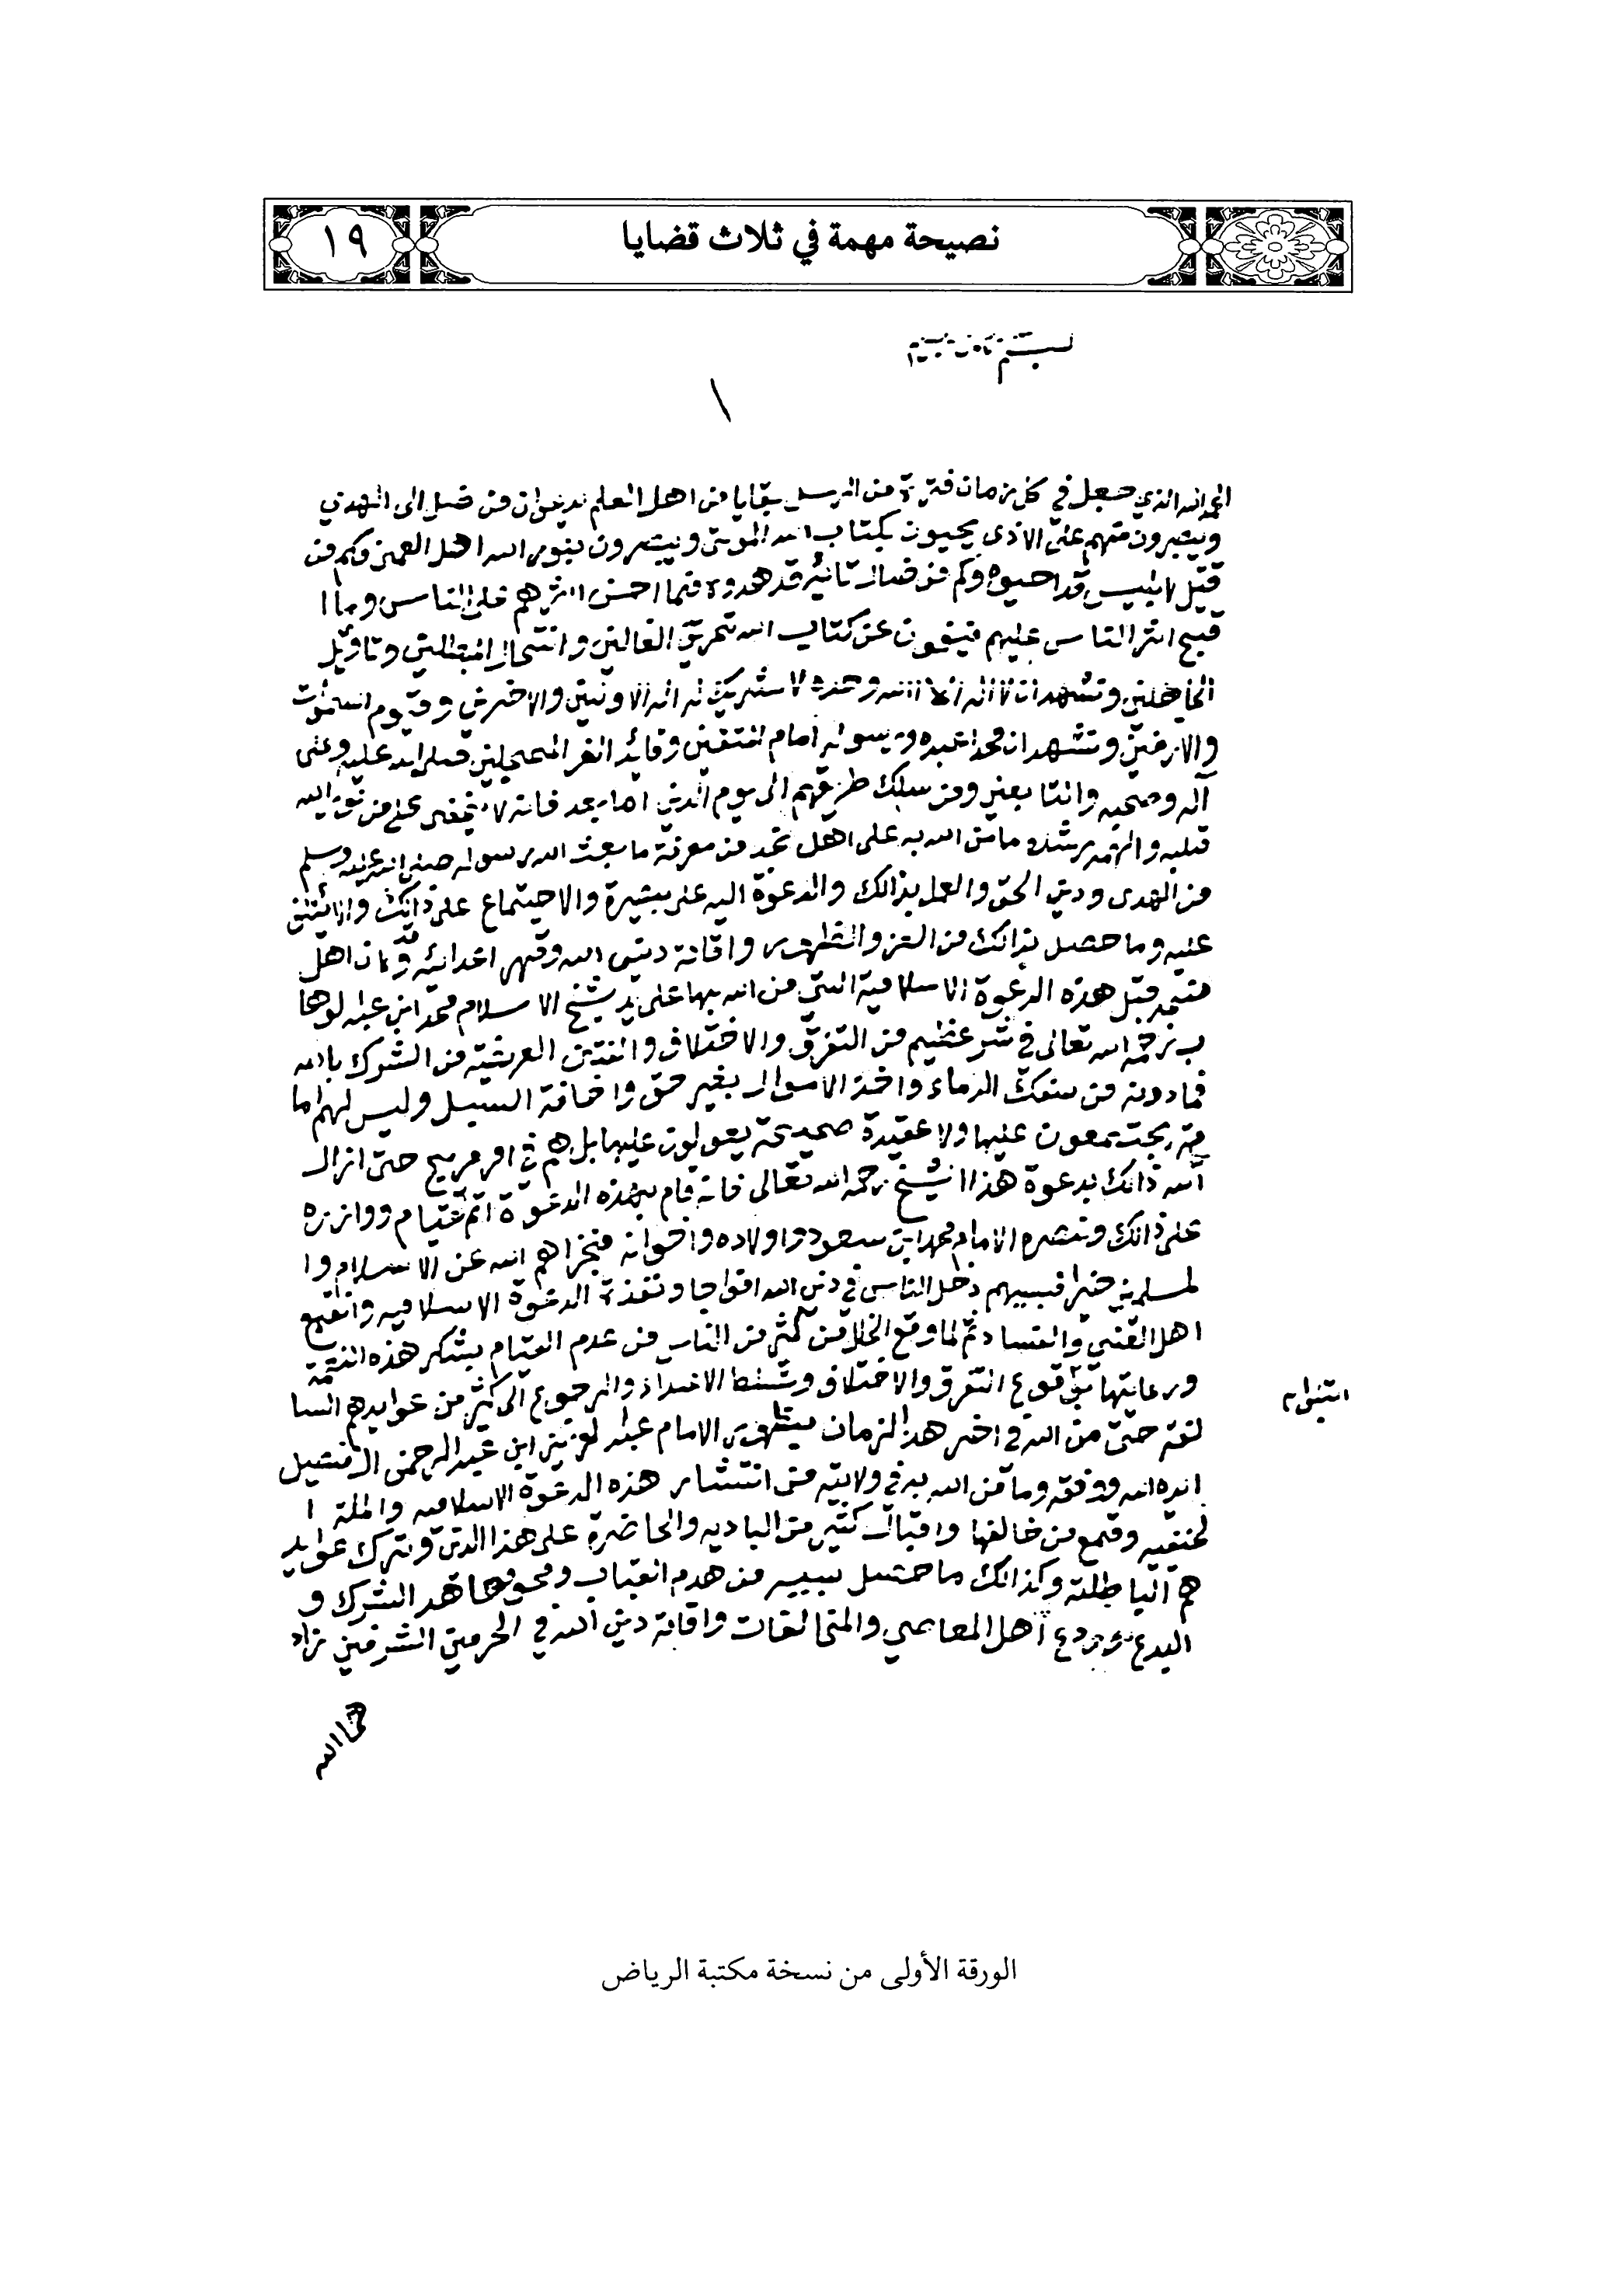 نصيحة مهمة في ثلاث قضايا
١٩
١
الحمد لله الذي جعل في كل زمان فترة من الرسل بقايا من اهل العلم يدعون من ضل الى الهدى
ويصبرون منهم على الاذى يحيون بكتاب الله الموتى ويبصرون بنور الله اهل العمى فكم من
قتيل لابليس قد احيوه وكم من ضال تائه قد هدوه فما احسن اثرهم على الناس وما ا
قبح اثر الناس عليهم ينفون عن كتاب الله تحريف الغالين وانتحال المبطلين وتاويل
الجاهلين ونشهد ان لا اله الا الله وحده لا شريك له اله الاولين والاخرين وقيوم السموات
والارضين ونشهد ان محمدا عبده ورسوله امام المتقين وقائد الغر المحجلين صلى الله عليه وعلى
آله وصحبه والتابعين ومن سلك طريقهم الى يوم الدين اما بعد فانه لا يخفى على من نور الله
قلبه والهمه رشده ما من الله به على اهل نجد من معرفة ما بعث الله رسوله صلى الله عليه وسلم
من الهدى ودين الحق والعمل بذالك والدعوة اليه على بصيرة والاجتماع على ذالك والائتلاف
عليه وما حصل بذالك من العز والظهور واقامة دين الله وقهر اعدائه وقد كان اهل
نجد قبل هذه الدعوة الاسلامية التي من الله بها على يد شيخ الاسلام محمد ابن عبد لوها
ب رحمه الله تعالى في شر عظيم من التفرق والاختلاف والفتن العريضة من الشرك بالله
فما دونه من سفك الدماء واخذ الاموال بغير حق واخافة السبيل وليس لهم اما
مة يجتمعون عليها ولا عقيدة صحيحة يعولون عليها بل هم في امر مريج حتى ازال
الله ذالك بدعوة هذا الشيخ رحمه الله تعالى فانه قام بهذه الدعوة اتم قيام ووازره
على ذالك ونصره الامام محمد ابن سعود واولاده واخوانه فجزاهم الله عن الاسلام وا
لمسلمين خيرا فبسببهم دخل الناس في دين الله افواجا ونفذة الدعوة الاسلامية وانقمع
اهل الفتن والفساد ثم لما وقع الخلل من كثير من الناس من عدم القيام بشكر هذه النعمة
ورعايتها وقوع التفرق والاختلاف وتسلط الاعداء والرجوع الى كثير من عوايدهم السا
لفة حتى من الله في اخر هذا الزمان بظهور الامام عبد لعزيز ابن عبد الرحمن ال فيصل
ايده الله ووفقه وما من الله به في ولايته من انتشار هذه الدعوة الاسلاميه والملة ا
لحنفيه وقمع من خالفها واقبال كثير من الباديه والحاضرة على هذا الدين وترك عوايد
هم الباطلة وكذالك ما حصل بسببه من هدم القباب ومحو معاهد الشرك و
البدع وردع اهل المعاصي والمخالفات واقامة دين الله في الحرمين الشريفين زاد
هما الله
الورقة الأولى من نسخة مكتبة الرياض